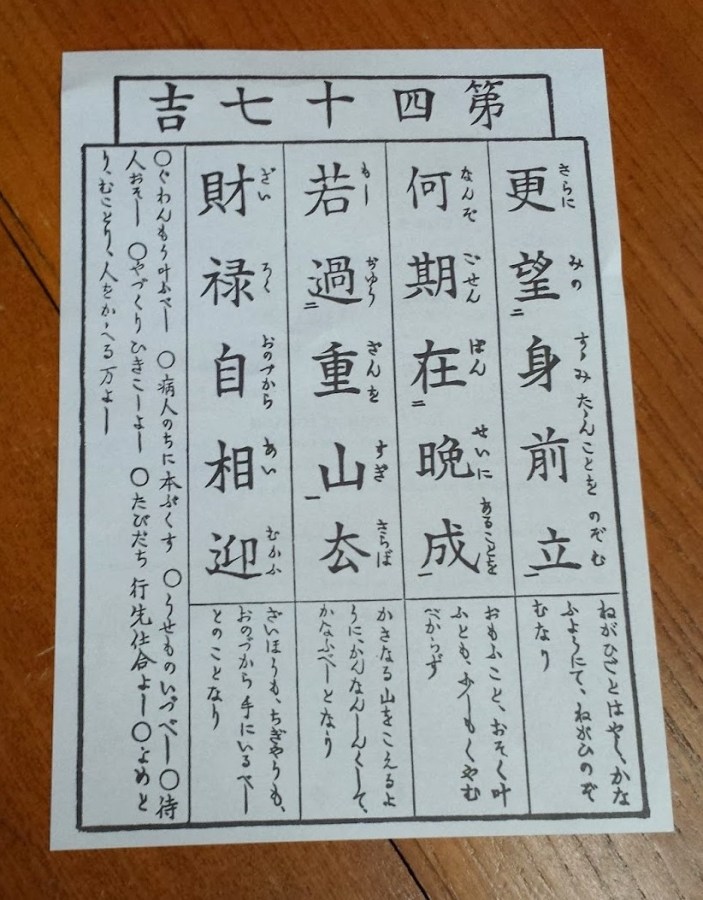 第四十七吉
さらに みの すゝみたゝんことを のぞむ
更望二身前立一
ねがひごとはやく、かな
ふようにて、ねがひのぞ
むなり
なんぞ ごせん ばん せいに あることを
何期在二晩成一
おもふこと、おそく叶
ふとも、少しもくやむ
べからず
もし ぢゆう ざんを すぎ さらば
若過二重山一去
かさなる山をこえるよ
うに、かんなんしんくして、
かなふべしとなり
ざい ろく おのづから あい むかふ
財禄自相迎
ざいほうも、ちぎやうも、
おのづから手にいるべし
とのことなり
〇ぐわんもう叶ふべし 〇病人のちに本ぷくす 〇うせものいづべし 〇待
人おそし 〇やづくりひきこしよし 〇たびだち行先仕合よし 〇よめと
り、むことり、人をかゝへる万よし